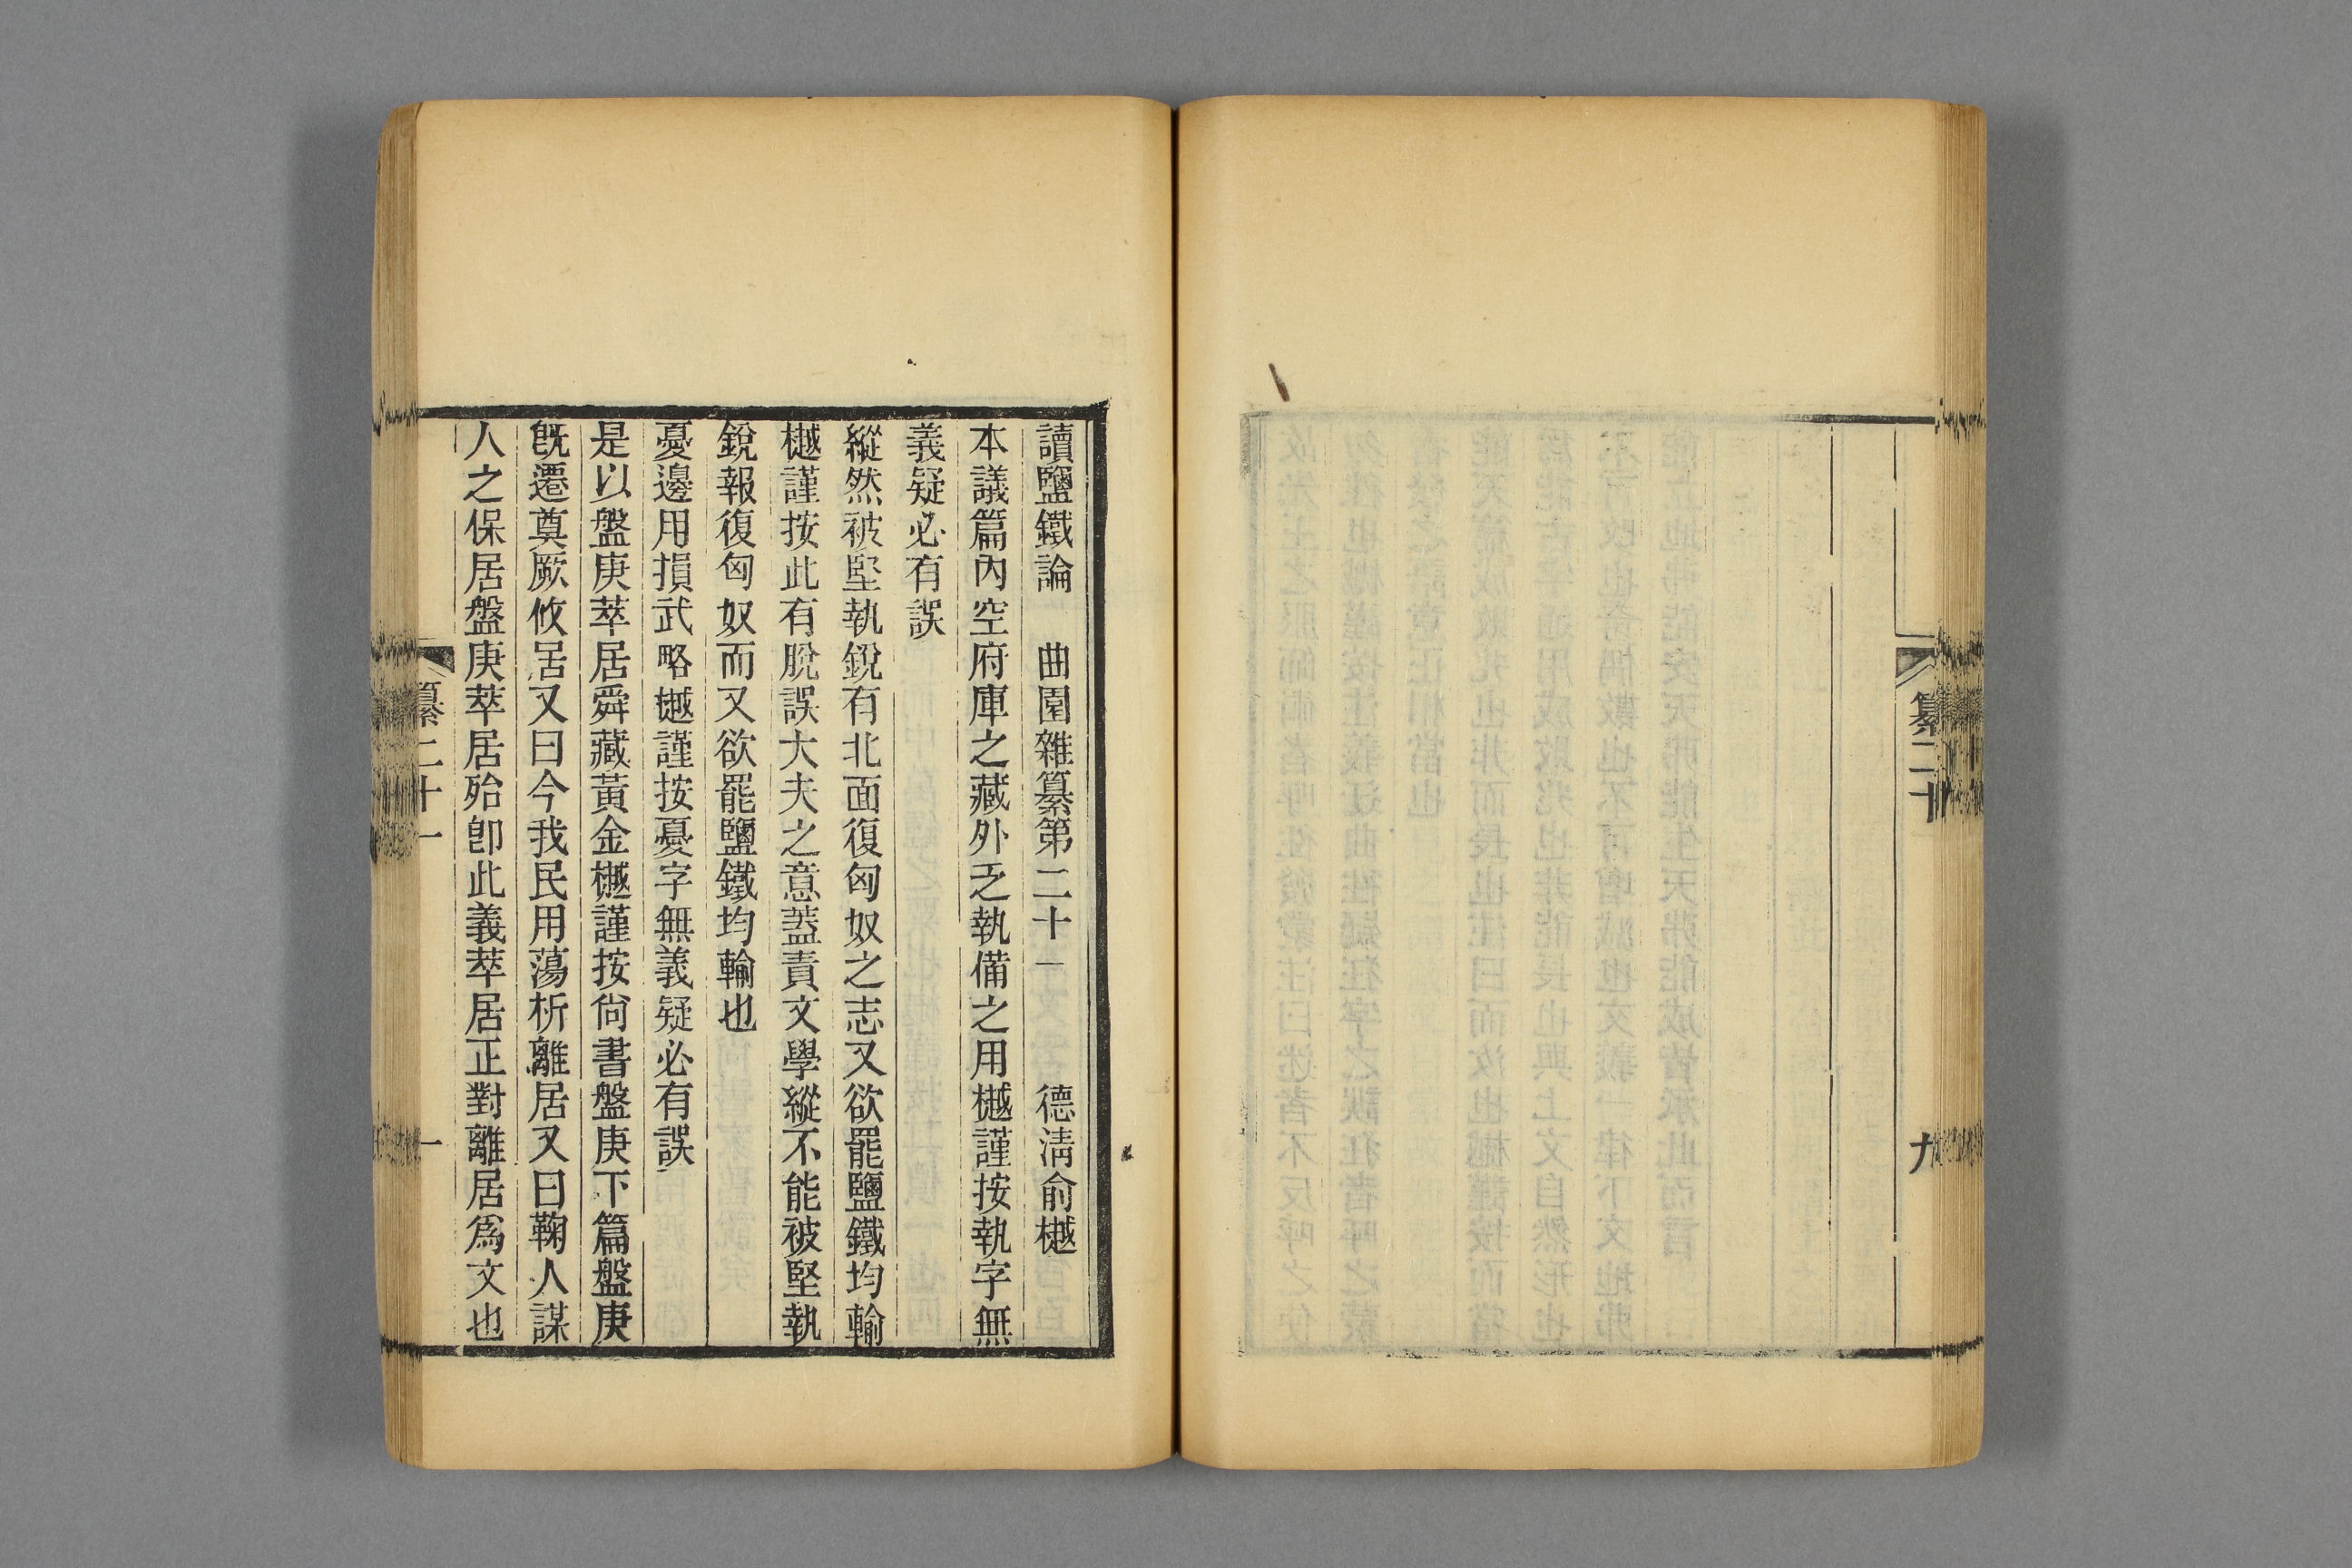 纂二十
九
讀鹽鐵論　曲園雜纂第二十一　德淸俞樾
本議篇內空府庫之藏外乏執備之用樾謹按執字無
義疑必有誤
縱然被堅執銳有北面復匈奴之志又欲罷鹽鐵均輸
樾謹按此有脫誤大夫之意蓋責文學縱不能被堅執
銳報復匈奴而又欲罷鹽鐵均輸也
憂邊用損武略樾謹按憂字無義疑必有誤
是以盤庚萃居舜藏黃金樾謹按尙書盤庚下篇盤庚
旣遷奠厥攸居又曰今我民用蕩析離居又曰鞠人謀
人之保居盤庚萃居殆卽此義萃居正對離居爲文也
纂二十一
一